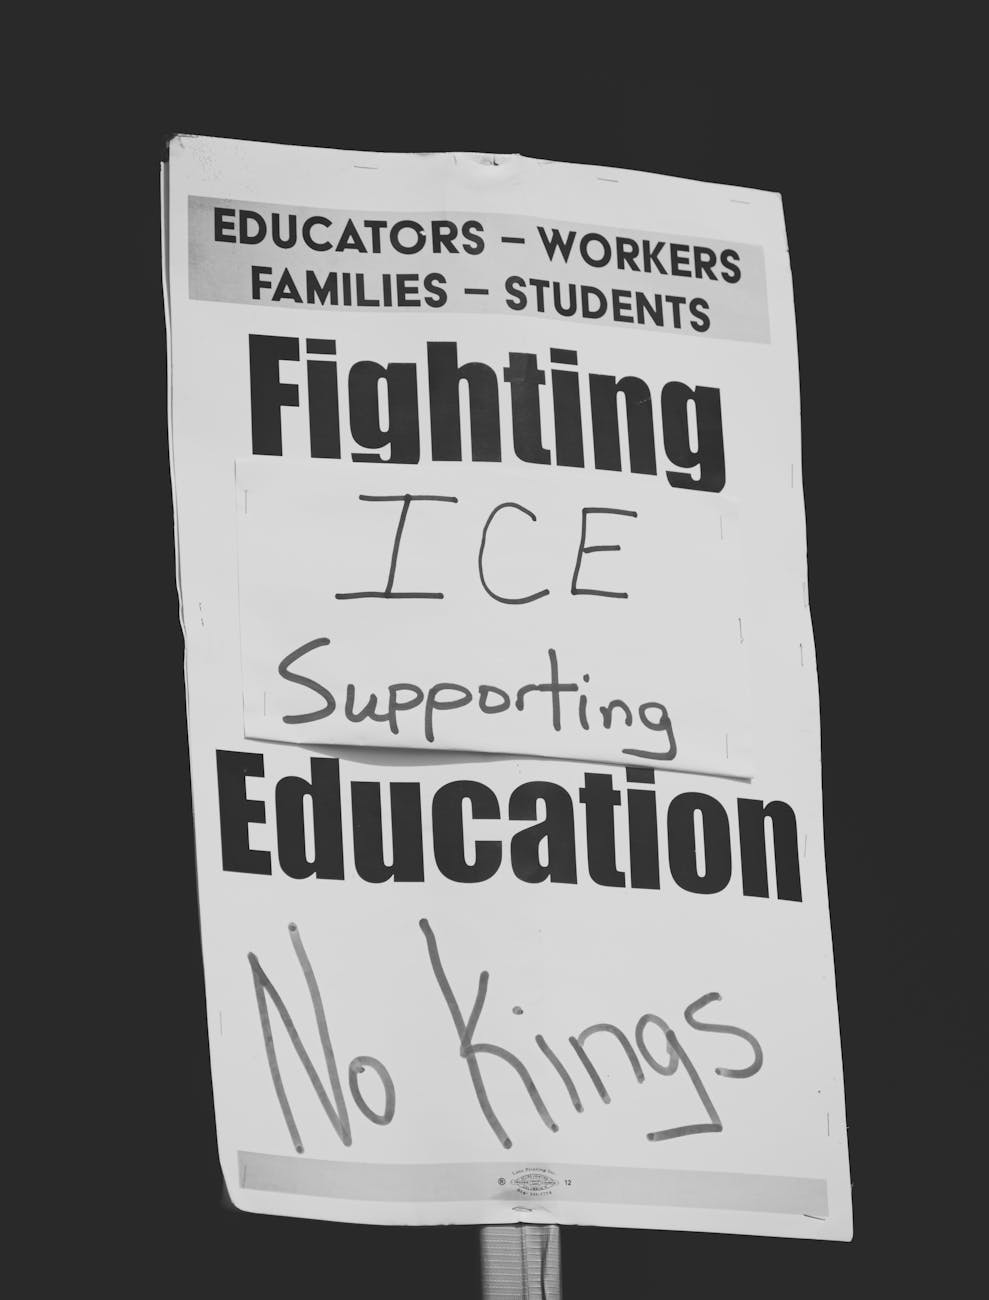 EDUCATORS – WORKERS
FAMILIES – STUDENTS
Fighting
ICE
Supporting
Education
No Kings
® 12